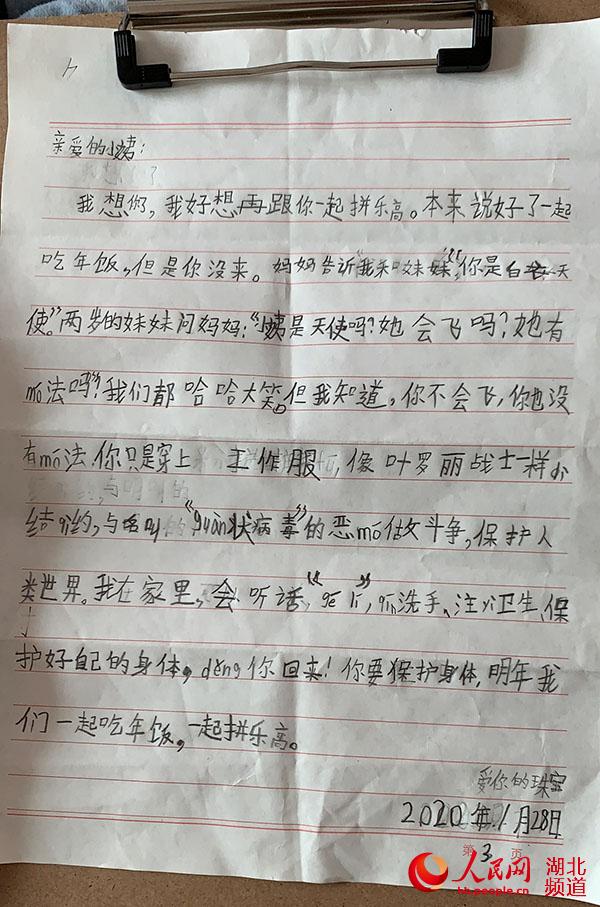 亲爱的小姨:
我想你,我好想再跟你一起拼乐高。本来说好了一起
吃年饭,但是你没来。妈妈告诉“我和妹妹”,你是白衣天
使。”两岁的妹妹问妈妈:“小姨是天使吗?她会飞吗?她有
mó法吗?”我们都哈哈大笑。但我知道,你不会飞,你也没
有mó法.你只是穿上工作服,像叶罗丽战士一样
结 约,与名叫“guàn状病毒”的恶mó做斗争,保护人
类世界。我在家里,会听话,“gé lí”,qín洗手、注yì卫生,保
护好自己的身体,děng你回来!你要保护身体,明年我
们一起吃年饭,一起拼乐高。
爱你的珠宝
2020年.1月28日
第 3 页
人民网 湖北频道
hb.people.cn